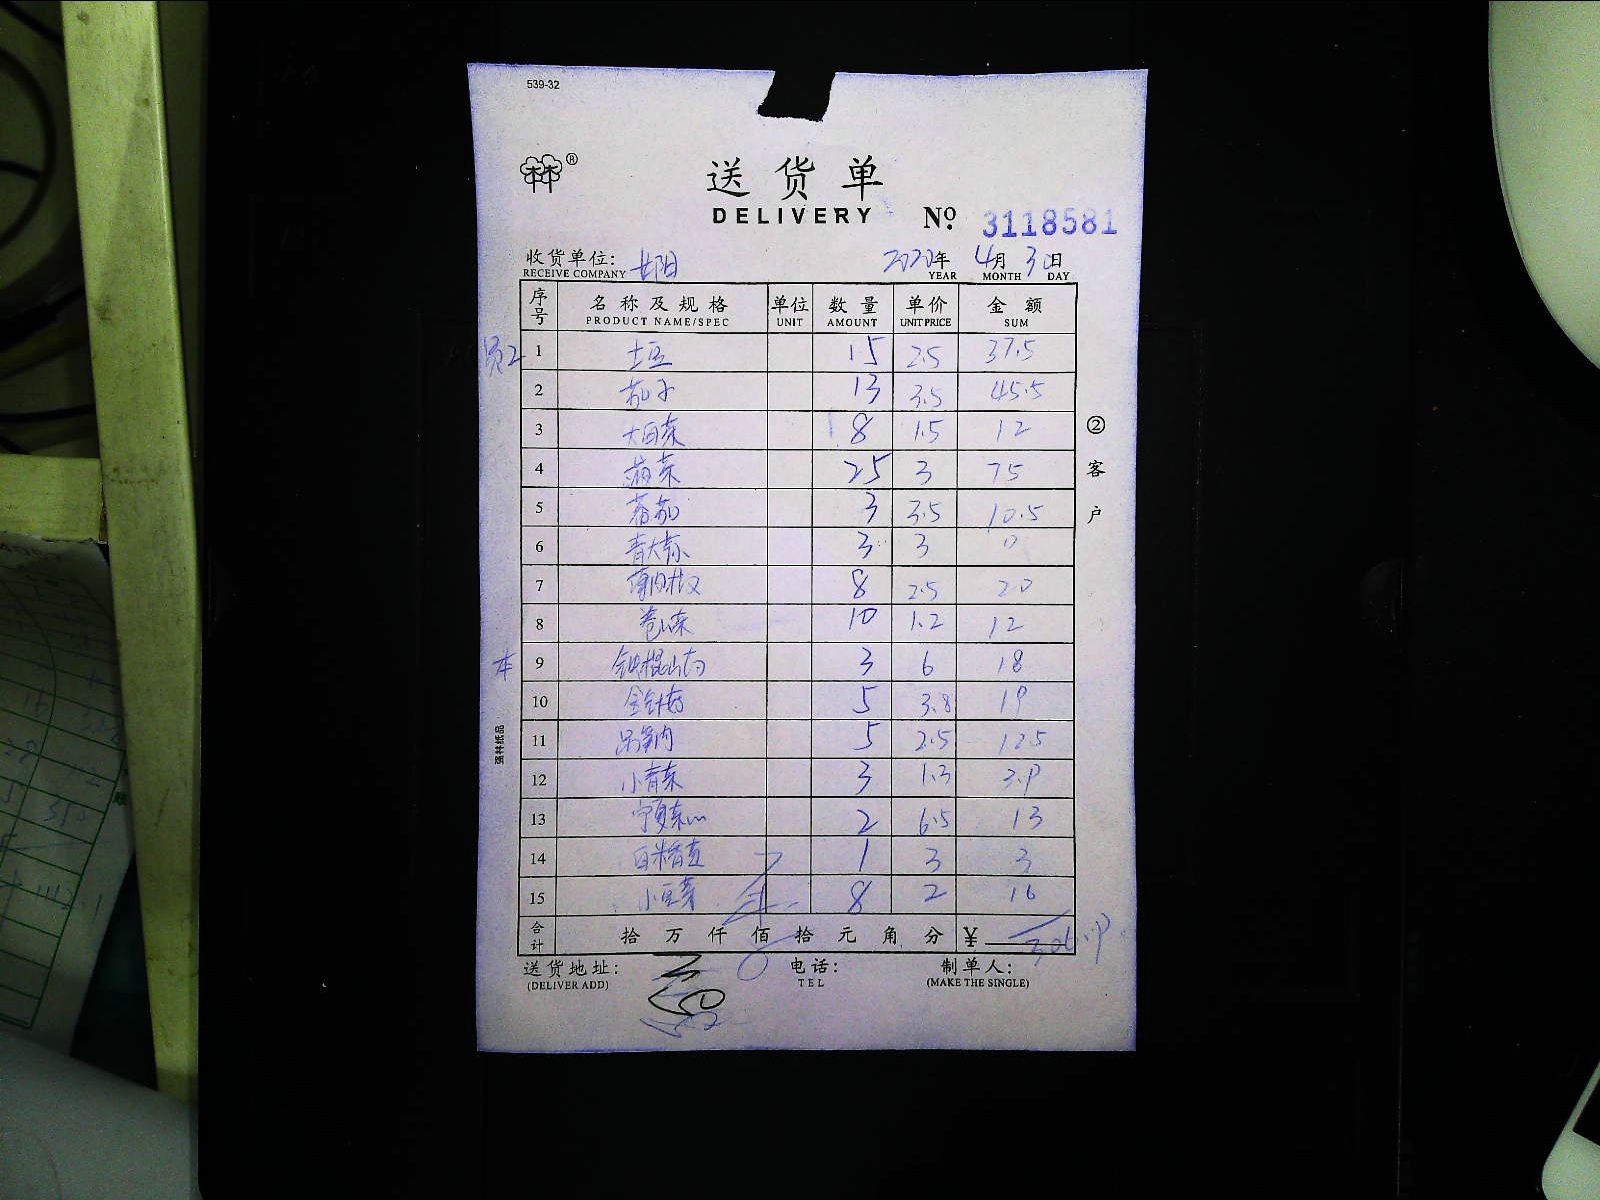 539-32
®
送货单
DELIVERY
№ 3118581
收货单位:
RECEIVE COMPANY
2020年 4月 30日
YEAR MONTH DAY
序号 名称及规格 单位 数量 单价 金额
PRODUCT NAME/SPEC UNIT AMOUNT UNIT PRICE SUM
1 土豆 15 2.5 37.5
2 茄子 13 3.5 45.5
3 大白菜 8 1.5 12
4 菠菜 25 3 75
5 蕃茄 3 3.5 10.5
6 青大蒜 3 3
7 8 2.5 20
8 卷心菜 10 1.2 12
9 铁棍山药 3 6 18
10 金针菇 5 3.8 19
11 5 2.5 12.5
12 小青菜 3 1.3 3.9
13 2 6.5 13
14 1 3 3
15 小豆芽 8 2 16
合计 拾万仟佰拾元角分 ¥
送货地址:
(DELIVER ADD)
电话:
TEL
制单人:
(MAKE THE SINGLE)
②客户
强林纸品